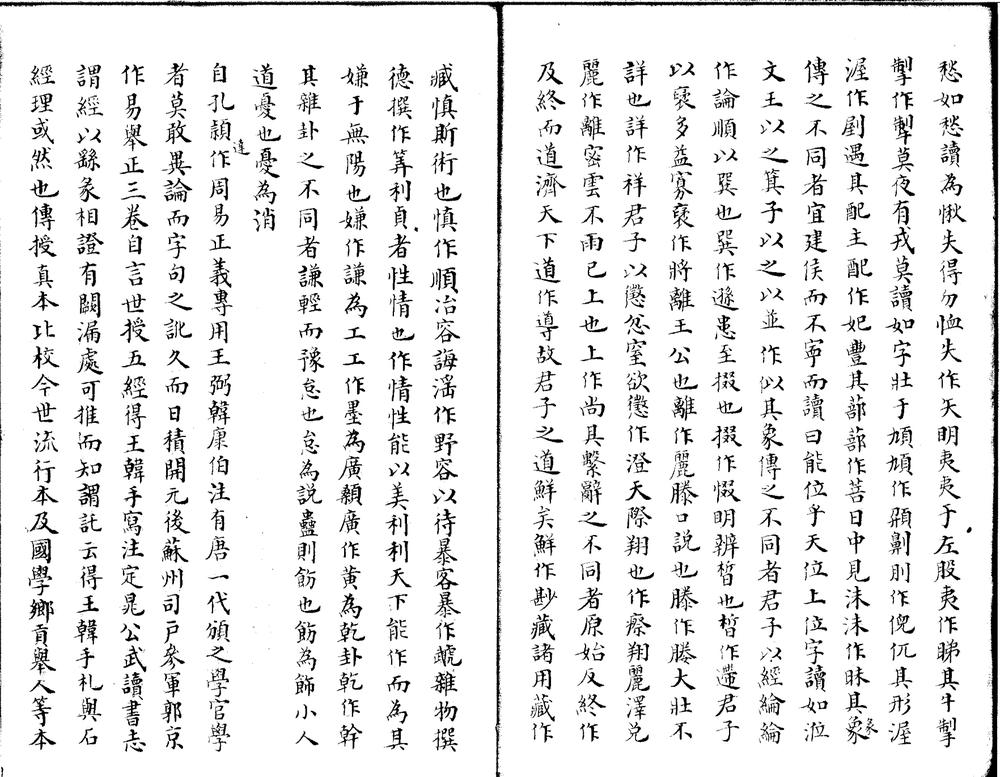 愁如愁讀為愀失得勿恤失作矢明夷夷于左股夷作睇其牛掣
掣作犎莫夜有戎莫讀如字壯于頄頄作頯劓刖作倪㐳其形渥
渥作剧遇其配主配作妃豐其蔀蔀作菩日中見沬沬作昧其象
傳之不同者宜建侯而不寧而讀曰能位乎天位上位字讀如涖
文王以之箕子以之以並作似其象傳之不同者君子以經綸綸
作論順以巽也巽作遜患至掇也掇作惙明辨晳也晳作遰君子
以裒多益寡裒作捋離王公也離作麗滕口說也滕作媵大壯不
詳也詳作祥君子以懲忿窒欲懲作澄天際翔也作瘵翔麗澤兌
麗作離密雲不雨已上也上作尚其繫辭之不同者原始反終作
及終而道濟天下道作導故君子之道鮮矣鮮作尠藏諸用藏作
臧慎斯術也慎作順冶容誨淫作野容以待暴客暴作虣雜物撰
德撰作筭利貞者性情也作情性能以美利利天下能作而為其
嫌于無陽也嫌作謙為工工作墨為廣顙廣作黄為乾卦乾作幹
其雜卦之不同者謙輕而豫怠也怠為說蠱則飭也飭為飾小人
道憂也憂為消
自孔頴達作周易正義專用王弼韓康伯注有唐一代頒之學官學
者莫敢異論而字句之訛久而日積開元後蘇州司戶參軍郭京
作易舉正三卷自言世授五經得王韓手寫注定晁公武讀書志
謂經以繇彖相證有闕漏處可推而知謂託云得王韓手札與石
經理或然也傳授真本比校今世流行本及國學鄉貢舉人等本